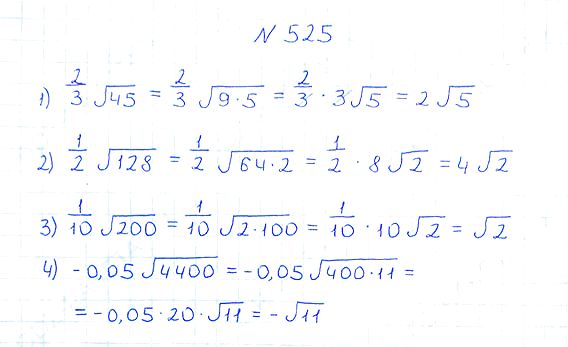 N 525
1) 2/3 √45 = 2/3 √9·5 = 2/3 · 3√5 = 2√5
2) 1/2 √128 = 1/2 √64·2 = 1/2 · 8√2 = 4√2
3) 1/10 √200 = 1/10 √2·100 = 1/10 · 10√2 = √2
4) -0,05 √4400 = -0,05 √400·11 =
= -0,05·20·√11 = -√11